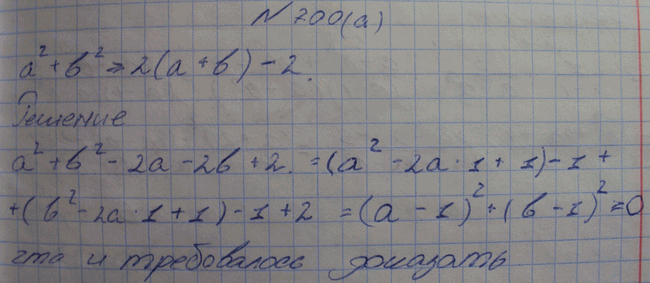 N 700(а)
a² + b² ≥ 2(a + b) - 2.
Решение
a² + b² - 2a - 2b + 2. = (a² - 2a · 1 + 1) - 1 +
+ (b² - 2a · 1 + 1) - 1 + 2 = (a - 1)² + (b - 1)² ≥ 0
что и требовалось доказать